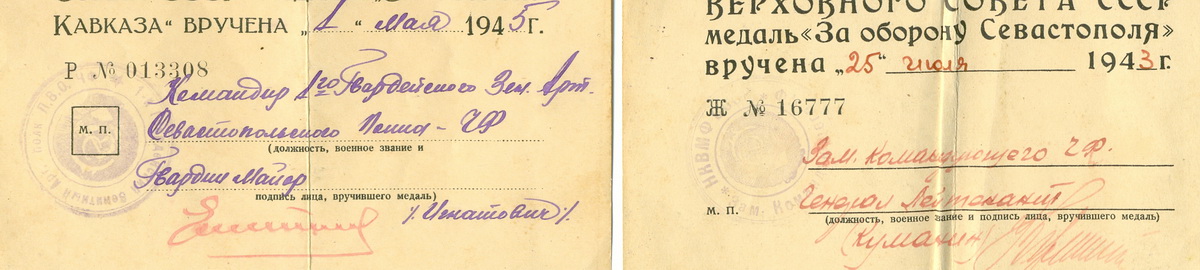 КАВКАЗА" ВРУЧЕНА „1" Мая 1945 г.
Р № 013308
Командир 1го Гвардейского Зен. Арт.
Севастопольского Полка - ЧФ
М. П.
(должность, военное звание и
Гвардии Майор
подпись лица, вручившего медаль)
/Игнатович/
ВЕРХОВНОГО СОВЕТА СССР
медаль «За оборону Севастополя»
вручена „25" июля 1943 г.
Ж № 16777
Зам. Командующего ЧФ.
Генерал Лейтенант
М. П.
(должность, военное звание и подпись лица, вручившего медаль)